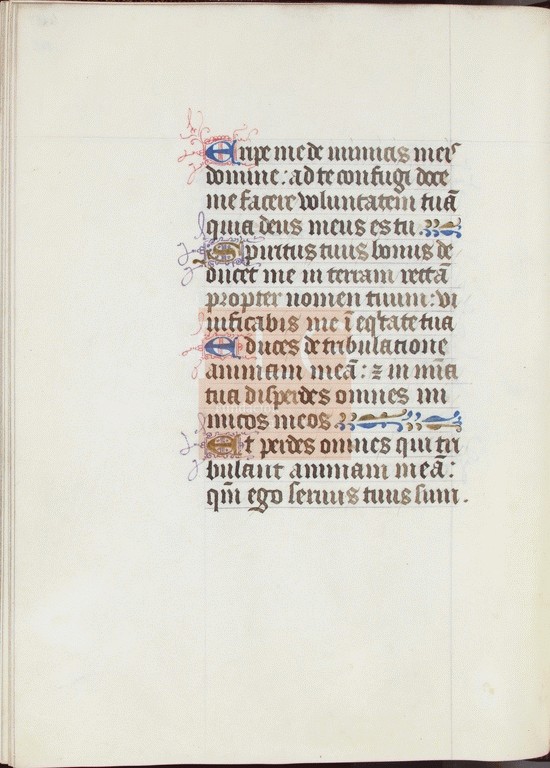 Eripe me de inimicis meis
domine: ad te confugi doce
me facere voluntatem tuā
quia deus meus es tu.
Spiritus tuus bonus de
ducet me in terram rectā
propter nomen tuum: vi
uificabis me ī eq̄tate tua
Educes de tribulatione
animam meā: ⁊ in mīa
tua disperdes omnes ini
micos meos
Et perdes omnes qui tri
bulant animam meā:
qm̄ ego seruus tuus sum.